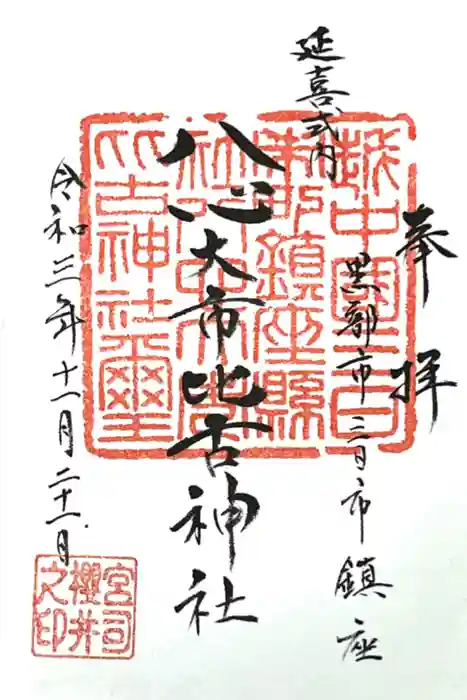 奉拝
延喜式内
黒部市三日市鎮座
八心大市比古神社
令和三年十一月二十一日
越中国三日
市鎮座縣
社八心大市
比古神社璽
宮司
櫻井
之印